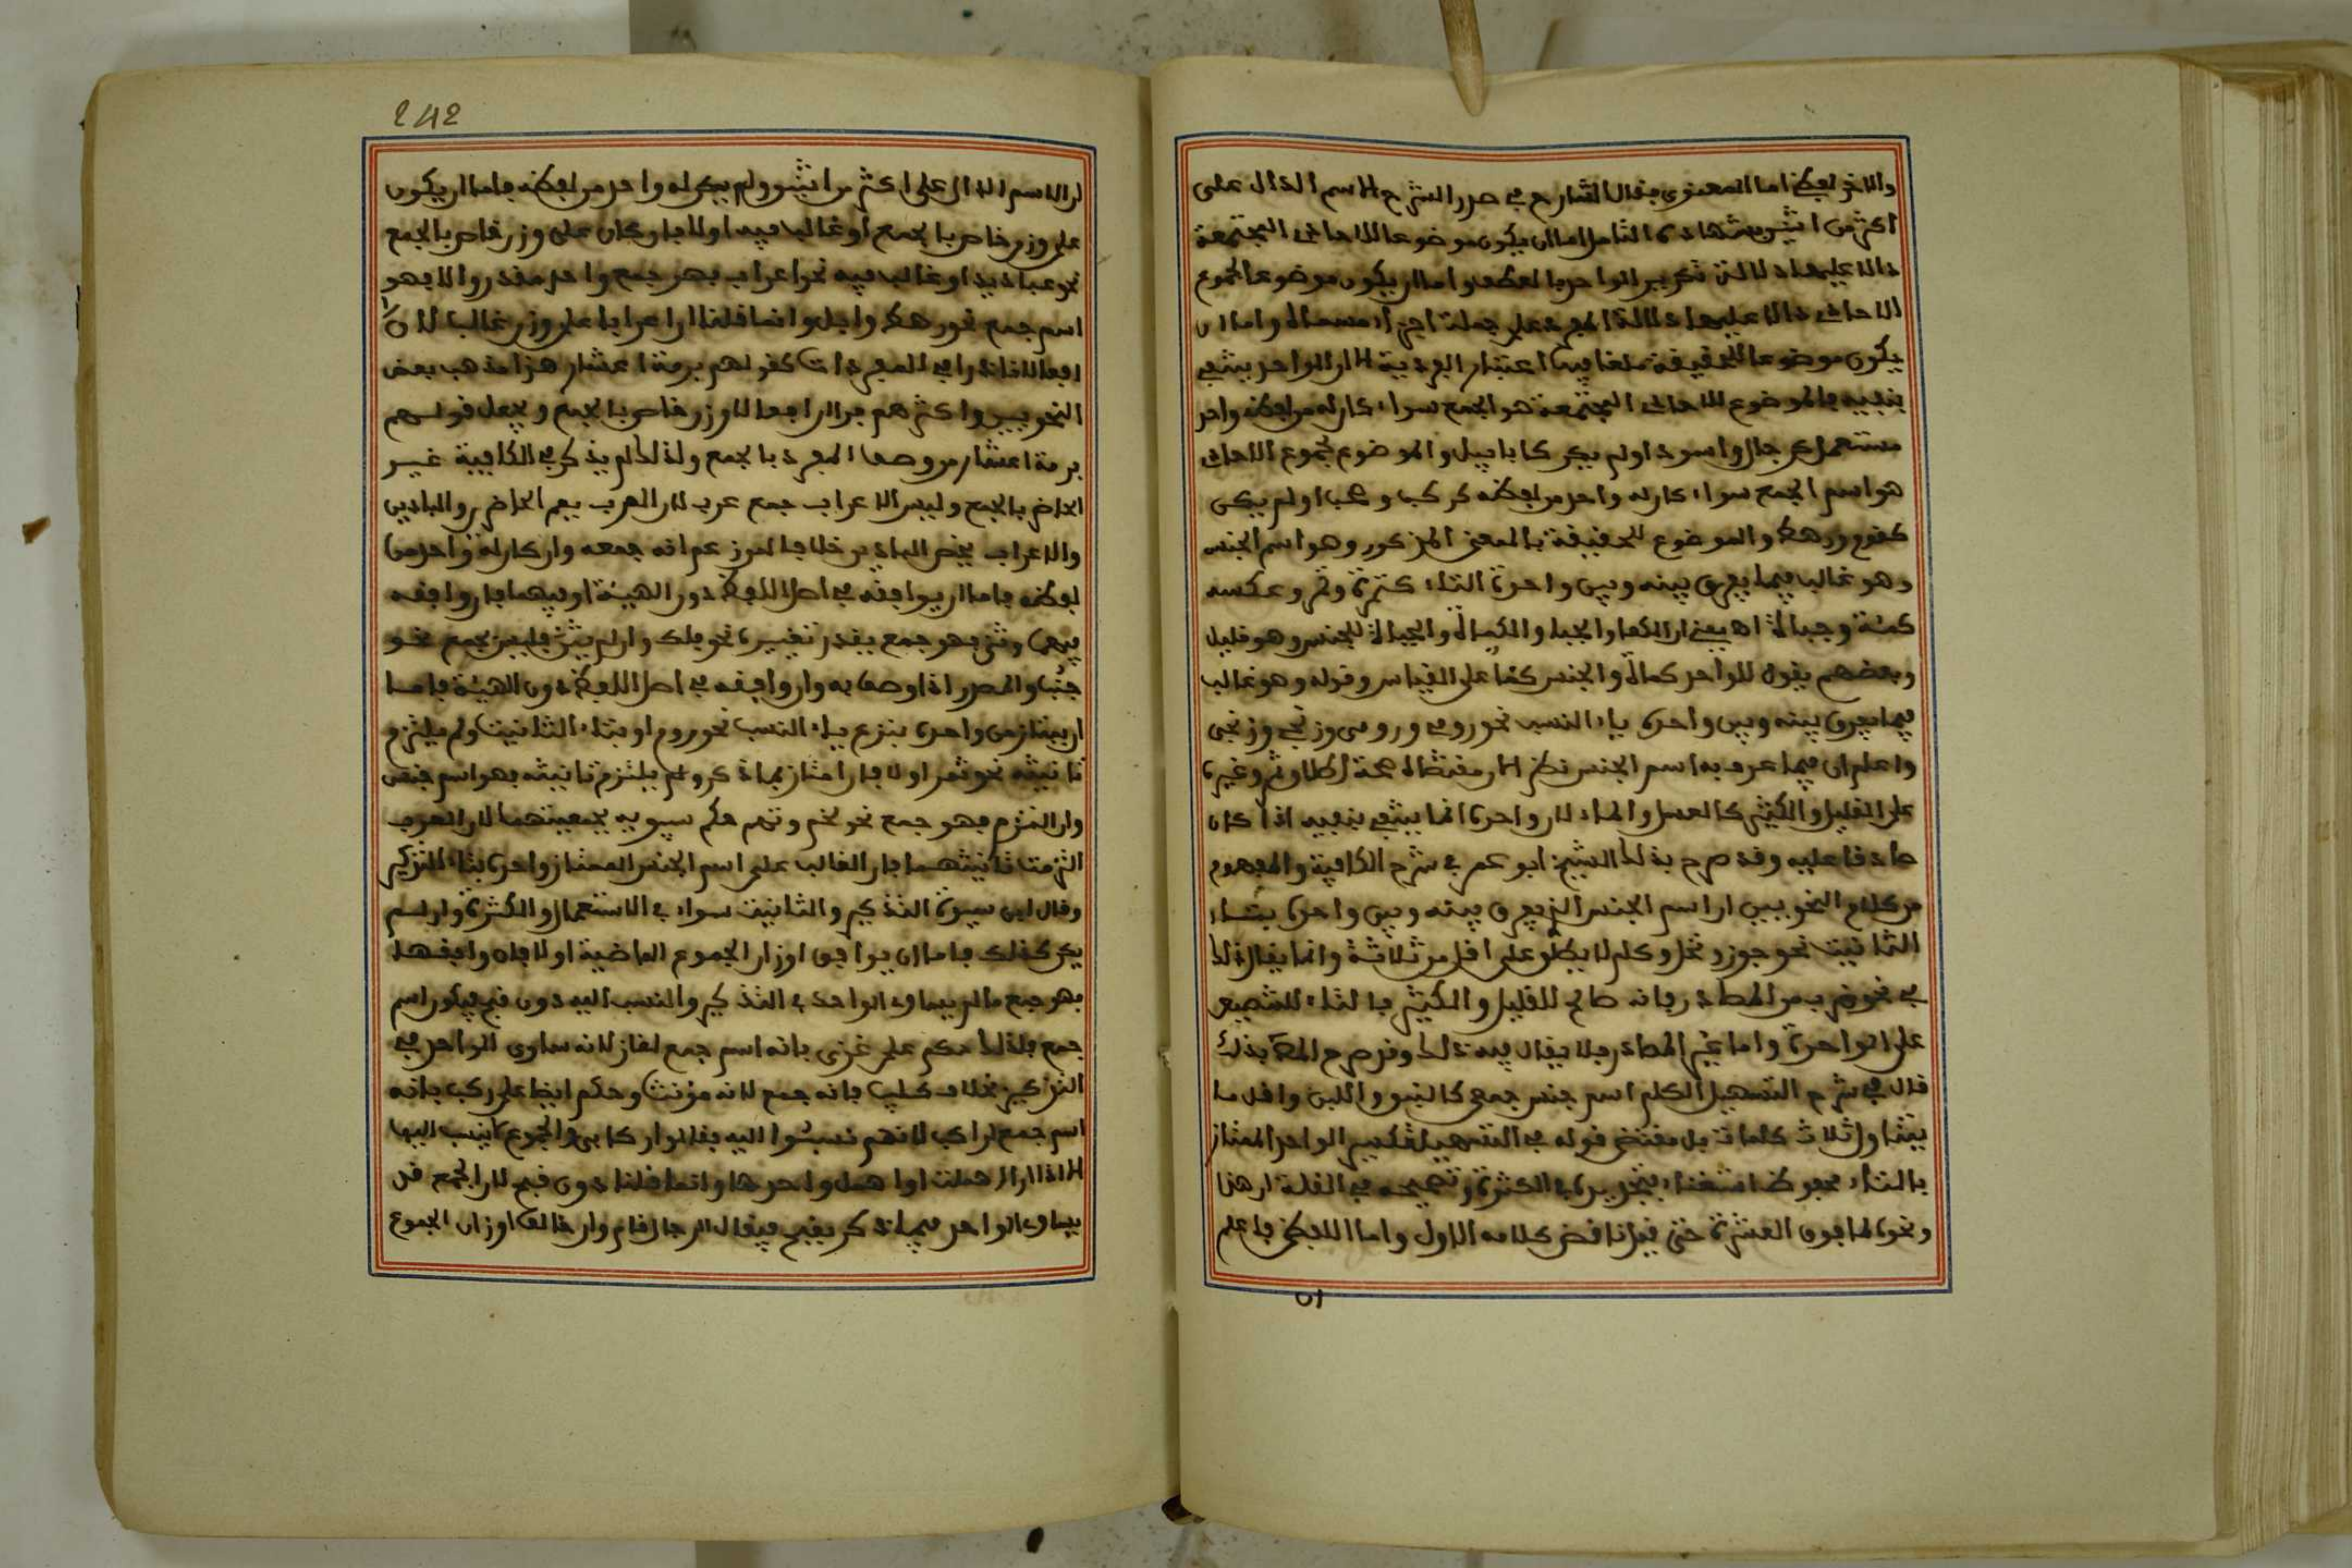 والاخر لفظي اما المعنوي فقال الشارح في صدر الشرح الاسم الدال على
اكثر من اثنين بشهادة التامل اما ان يكون موضوعا للاحاد المجتمعة
دالا عليها دلالة تكرير الواحد بالعطف واما ان يكون موضوعا لمجموع
الاحاد دالا عليها دلالة المفرد على جملة اجزاء مسماه واما ان
يكون موضوعا للحقيقة ملغا فيها اعتبار الفردية الا ان الواحد ينتفي
بنفيه فالموضوع للاحاد المجتمعة هو الجمع سواء كان له من لفظه واحد
مستعمل كرجال واسود او لم يكن كابابيل والموضوع لمجموع الاحاد
هو اسم الجمع سواء كان له واحد من لفظه كركب وصحب او لم يكن
كقوم ورهط والموضوع للحقيقة بالمعنى المذكور وهو اسم الجنس
وهو غالب فيما يفرق بينه وبين واحده التاء كتمرة وتمر وعكسه
كمئة وجباة اه يعني ان الكمأ والجبأ والكمأة والجبأة للجنس وهو قليل
وبعضهم يقول للواحد كمأة والجنس كمأ على القياس وقوله وهو غالب
فيما يفرق بينه وبين واحده ياء النسب نحو روم ورومي وزنج وزنجي
واعلم ان فيما عرف به اسم الجنس نظر الا ان مقتضاه صحة اطلاق تمر وغيره
على القليل والكثير كالعسل والماء لان واحده انما ينتفي بنفيه اذا كان
صادقا عليه وقد صرح بذلك الشيخ ابو عمر في شرح الكافية والمفهوم
من كلام النحويين ان اسم الجنس الذي يفرق بينه وبين واحده بتاء
التانيث نحو جوز ونخل وكلم لا يطلق على اقل من ثلاثة وانما يقال ذلك
في نحو ضرب من المصادر فانه صالح للقليل والكثير فالتاء للتنصيص
على الواحدة واما غير المصادر فلا يقال فيه ذلك وقد صرح المص بذلك
قال في شرح التسهيل الكلم اسم جنس جمعي كالنبق واللبن واقل ما
يتناول ثلاث كلمات بل مقتضى قوله في التسهيل تكسير الواحد الممتاز
بالتاء محفوظ استغناء بتجريده في الكثرة وتصحيحه في القلة ان هذا
ونحوه لما فوق العشرة حتى قيل ناقض كلامه الاول واما اللفظي فاعلم
ان
242
ان الاسم الدال على اكثر من اثنين ولم يكن له واحد من لفظه فاما ان يكون
على وزن خاص بالجمع او غالب فيه اولا فان كان على وزن خاص بالجمع
نحو عباديد او غالب فيه نحو اعراب فهو جمع واحد مقدر والا فهو
اسم جمع نحو رهط وابل وانما قلنا ان اعرابا على وزن غالب لان
افعالا نادر في المفردات كقولهم برمة اعشار هذا مذهب بعض
النحويين واكثرهم يرى ان افعالا وزن خاص بالجمع ويجعل قولهم
برمة اعشار من وصف المفرد بالجمع ولذلك لم يذكر في الكافية غير
الخاص بالجمع وليس الاعراب جمع عرب لان العرب يعم الحاضرين والبادين
والاعراب يخص البادين خلافا لمن زعم انه جمعه وان كان له واحد من
لفظه فاما ان يوافقه في اصل اللفظ دون الهيئة او فيهما فان وافقه
فيهما وثني فهو جمع يقدر تغييره نحو فلك وان لم يثن فليس بجمع نحو
جنب والمصدر اذا وصف به وان وافقه في اصل اللفظ دون الهيئة فاما
ان يمتاز من واحده بنزع ياء النسب نحو روم او بتاء التانيث ولم يلتزم
تانيثه نحو تمر اولا فان امتاز بما ذكر ولم يلتزم تانيثه فهو اسم جنس
وان التزم فهو جمع نحو تخم وتهم حكم سيبويه بجمعيتهما لان العرب
التزمت تانيثهما فان الغالب على اسم الجنس الممتاز واحده بتاء التذكير
وقال ابن سيده التذكير والتانيث سواء في الاستعمال والكثرة وان لم
يكن كذلك فاما ان يوافق اوزان الجموع الماضية اولا فان وافقها
فهو جمع ما لم يساو الواحد في التذكير والنسب اليه دون قبح فيكون اسم
جمع فلذلك حكم على غزي بانه اسم جمع لغاز لانه ساوى الواحد في
التذكير بخلاف كليب فانه جمع لانه مؤنث وحكم ايضا على ركب بانه
اسم جمع لراكب لانهم نسبوا اليه فقالوا ركابي والجموع لا ينسب اليها
الا اذا ان اهملت او اهمل واحدها وانما قلنا دون قبح لان الجمع قد
يساوي الواحد فيما ذكر بقبح فيقال الرجال قام وان خالف اوزان الجموع